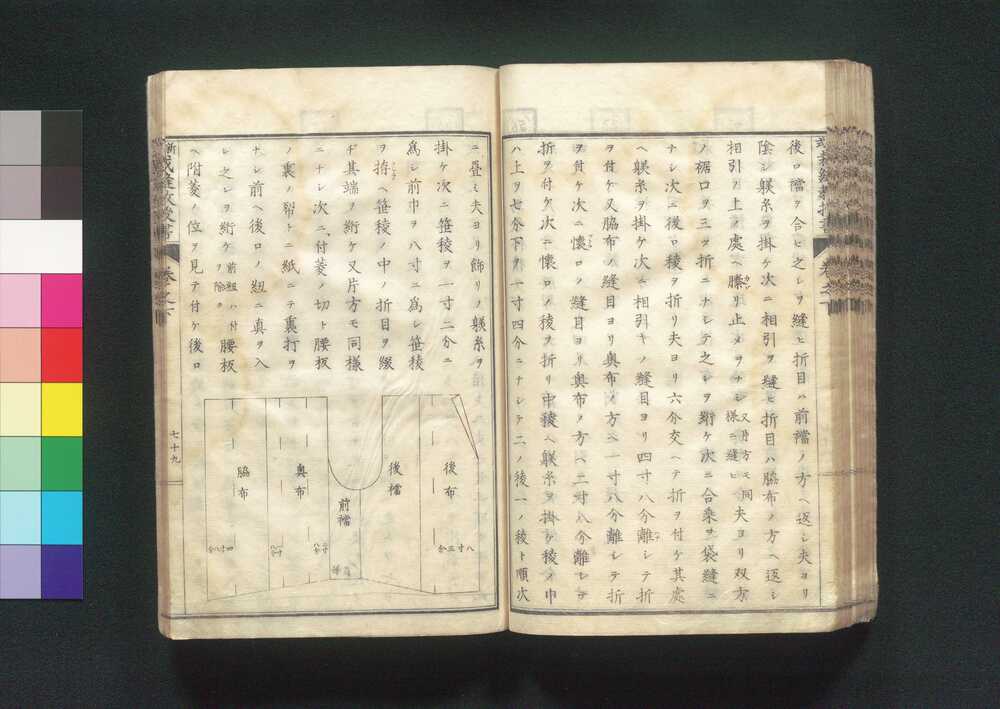 後ロ襠ヲ合セ之レヲ縫ヒ折目ハ前襠ノ方ヘ返シ夫ヨリ
陰シ躾糸ヲ掛ケ次ニ相引ヲ縫ヒ折目ハ脇布ノ方ヘ返シ
相引ヲ止ノ處ヘ縢リ止メヲナシ又片方モ同様ニ縫ヒ夫ヨリ双方
ノ裾口ヲ三ツ折ニナシテ之レヲ絎ケ次ニ合乗ヲ袋縫ニ
ナシ次ニ後ロ稜ヲ折リ夫ヨリ六分交ヘテ折ヲ付ケ其處
ヘ躾糸ヲ掛ケ次ニ相引キノ縫目ヨリ四寸八分離レテ折
ヲ付ケ又脇布ノ縫目ヨリ奥布ノ方ヘ一寸八分離シテ
ヲ付ケ次ニ懐ロノ縫目ヨリ奥布ノ方ヘ二寸八分離レテ
折ヲ付ケ次ニ懐ロノ稜ヲ折リ中稜ヘ躾糸ヲ掛ケ稜ノ巾
ハ上ヲ七分下ヲ一寸四分ニナシテ二ノ後一ノ稜ト順次
ニ畳ミ夫ヨリ飾リノ躾糸ヲ
掛ケ次ニ笹稜ヲ一寸二分ニ
為シ前巾ヲ八寸ニ為シ笹稜
ヲ拵ヘ笹稜ノ中ノ折目ヲ綴
ヂ其端ヲ絎ケ又片方モ同様
ニナシ次ニ付菱ノ切ト腰板
ノ裏ノ布トニ紙ニテ裏打ヲ
ナシ前ヘ後ロノ紐ニ真ヲ入
レ之レヲ絎ケ前紐ハ付ヲ除ク腰板
ヘ附菱ノ位ヲ見テ付ケ後ロ
後布
後襠
前襠
奥布
脇布
八寸三分
七十九